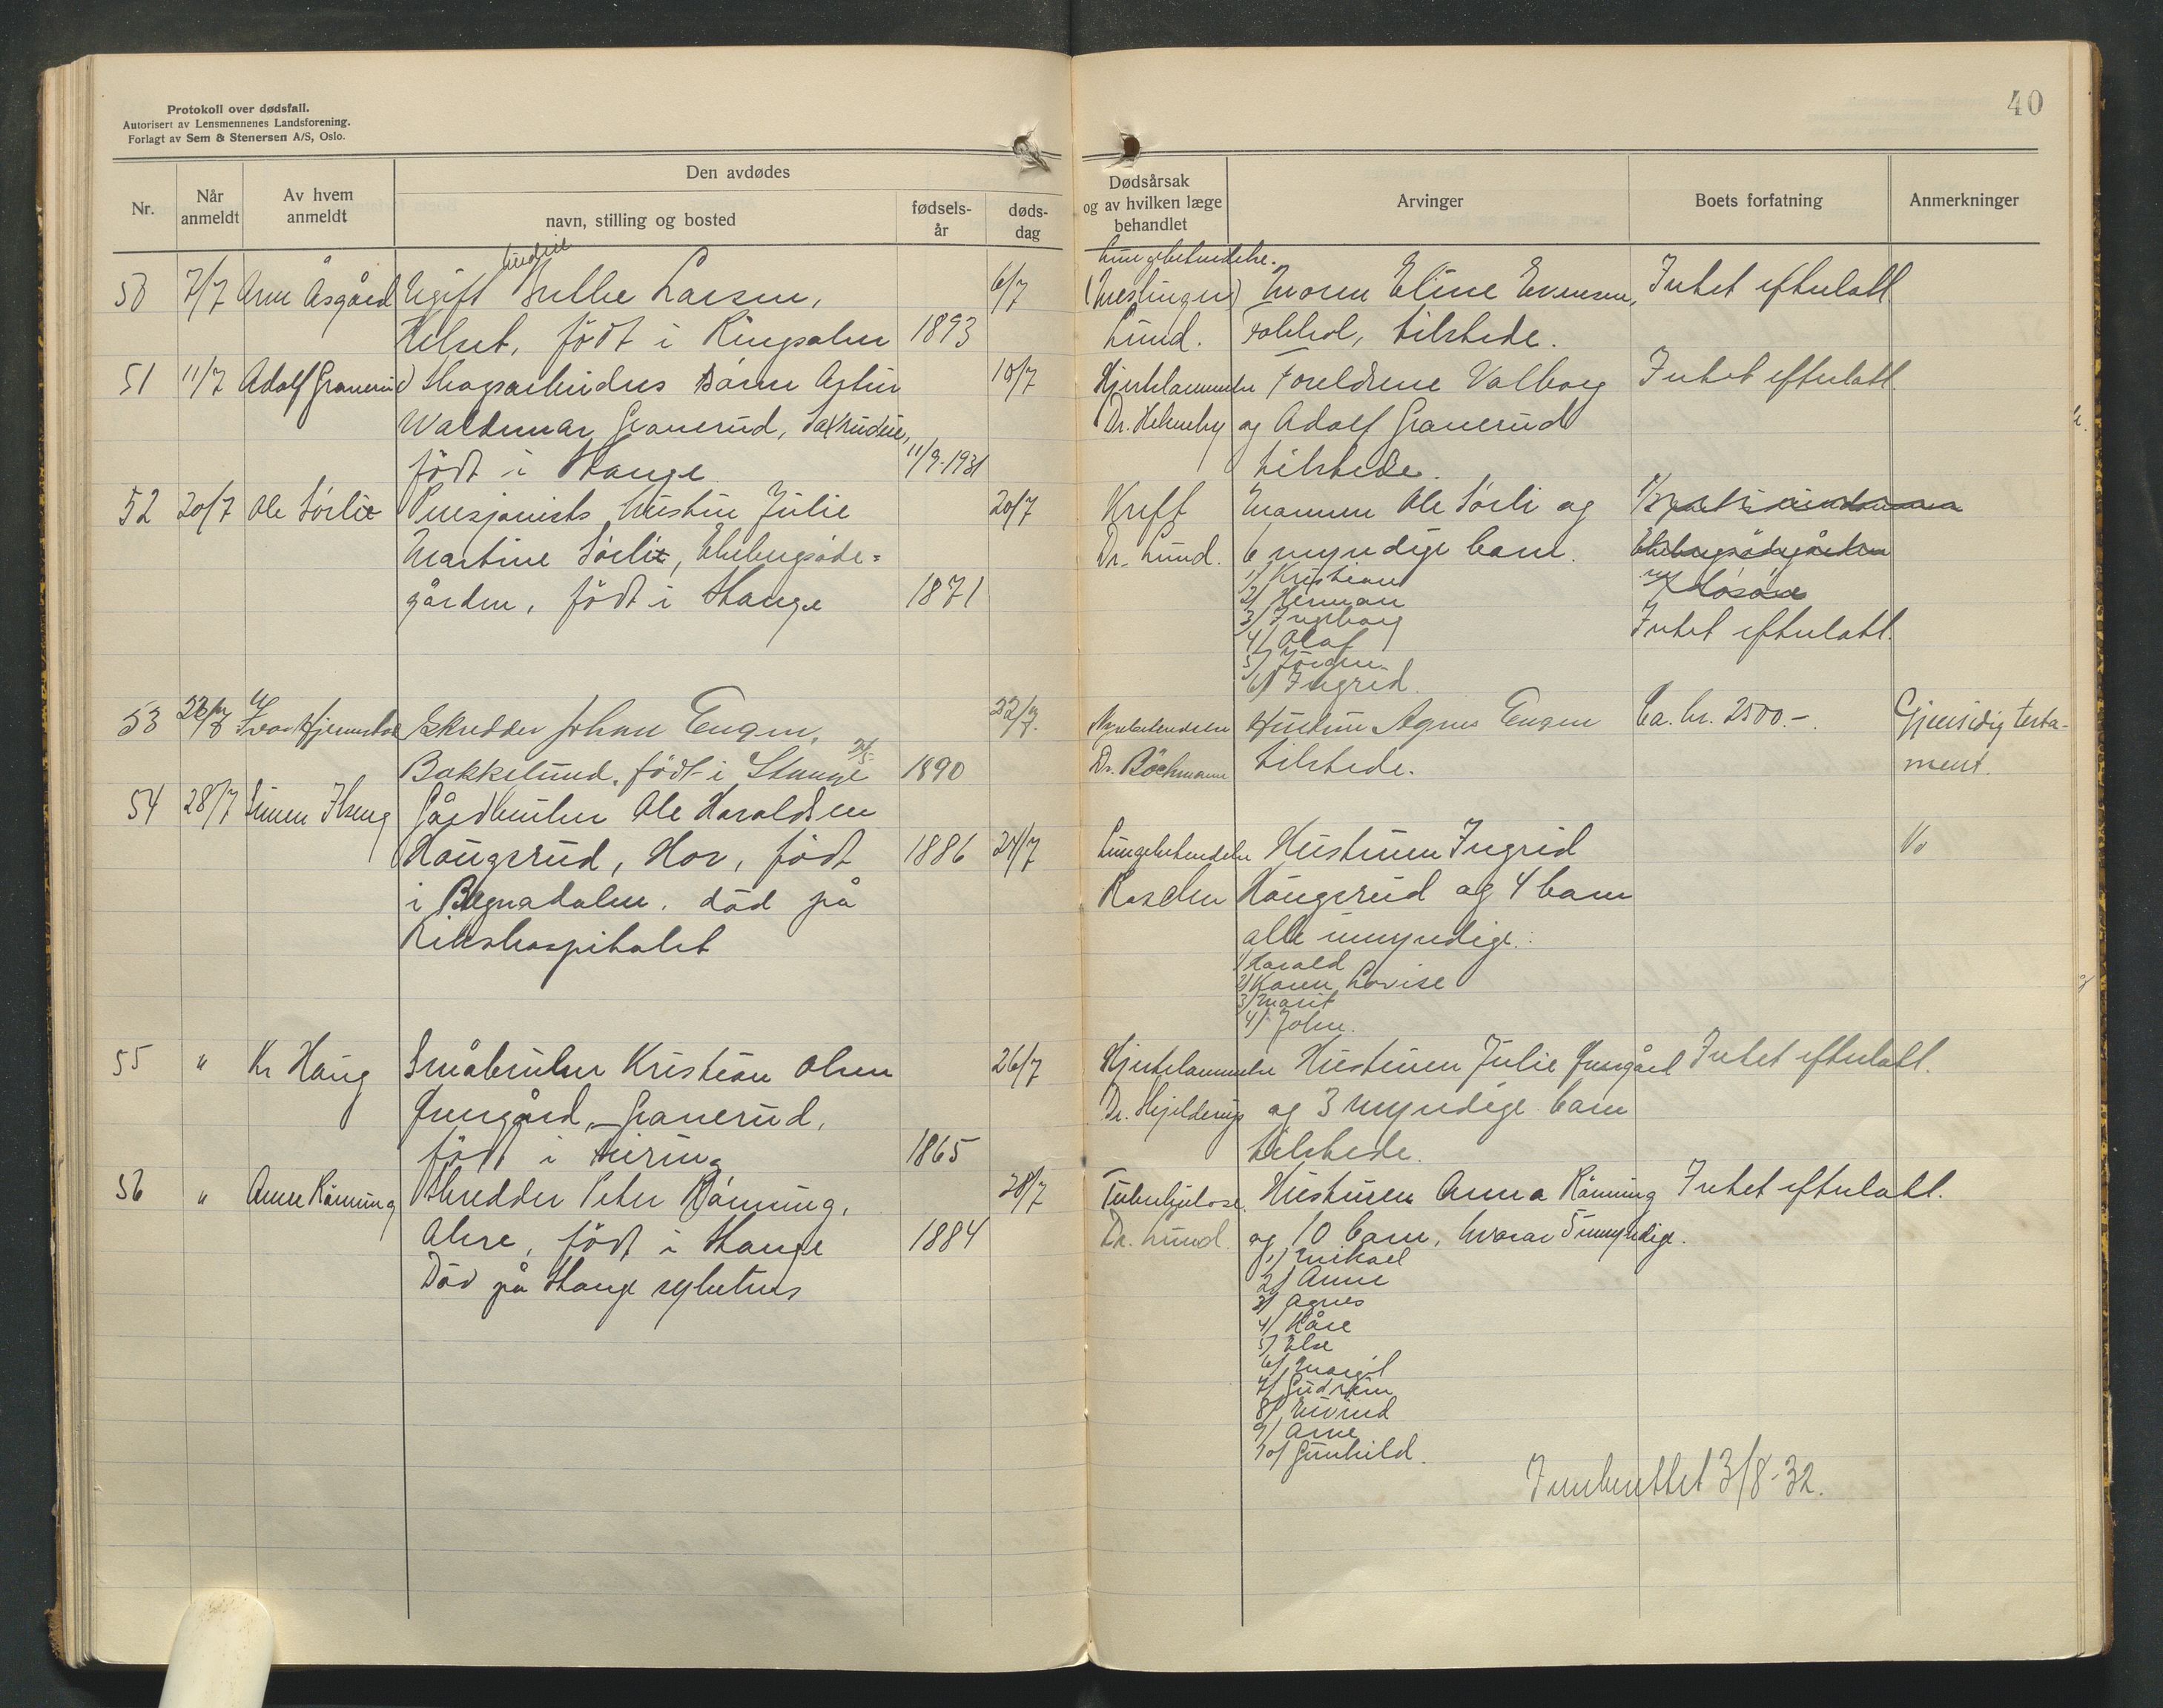 Protokoll over dødsfall.
Autorisert av Lensmennenes Landsforening.
Forlagt av Sem & Stenersen A/S, Oslo.
40
Nr.
Når anmeldt
Av hvem anmeldt
Den avdødes
navn, stilling og bosted
fødsels-år
døds-dag
Dødsårsak
og av hvilken læge
behandlet
Arvinger
Boets forfatning
Anmerkninger
50 7/7 Arne Åsgård Ugift Larsen, 6/7
født i Ringsaker 1893
Lungebetendelse.
(Meslinger)
Lund.
Moren Eline Evensen,
tilstede.
Intet efterlatt
51 11/7 Adolf Granerud Skogsarbeiders sønn 10/7
Waldemar Granerud,
født i Stange 11/9-1931
Hjertelammelse
Foreldrene Valborg
og Adolf Granerud
tilstede.
Intet efterlatt
52 20/7 Ole Sørlie Pensjonists hustru Julie 20/7
Martine Sørlie,
gården, født i Stange 1871
Kreft
Dr. Lund.
Mannen Ole Sørli og
6 myndige barn.
1/ Kristian
2/ Herman
3/ Ingeborg
4/ Olaf
5/ Jørgen
6/ Ingrid.
Intet efterlatt.
53 Skredder Johan Engen, 22/7.
Bakkelund, født i Stange 1890
Dr. Böckmann
Hustru Agnes Engen
tilstede.
Ca. kr. 2500.-
Gjensidig testa-
ment.
54 28/7 Simen Ilseng Gårdbruker Ole Haraldsen
Haugsrud, Hov, født 1886 24/7
i Begnadalen. død på
Rikshospitalet
Lungebetendelse
Hustruen Ingrid
Haugsrud og 4 barn
alle umyndige:
1/ Harald
2/ Karen Lovise
3/ Marit
4/ John.
55 " Kr Haug Småbruker Kristian Olsen 26/7
Granerud,
født i 1865
Hjertelammelse
Dr. Hjelderup
Hustruen Julie
og 3 myndige barn
tilstede.
Intet efterlatt.
56 " Anne Rønning Skredder Peter Rønning, 28/7
født i Stange 1884
Død på Stange sykehus
Tuberkulose.
Dr. Lund.
Hustruen Anna Rønning
og 10 barn, hvorav 5 umyndige.
1/ Mikael
2/ Anne
3/ Agnes
4/ Kåre
5/ Else
6/ Margit
7/ Gudrun
8/ Eivind
9/ Arne
10/ Gunhild.
Intet efterlatt.
Innberettet 3/8-32.